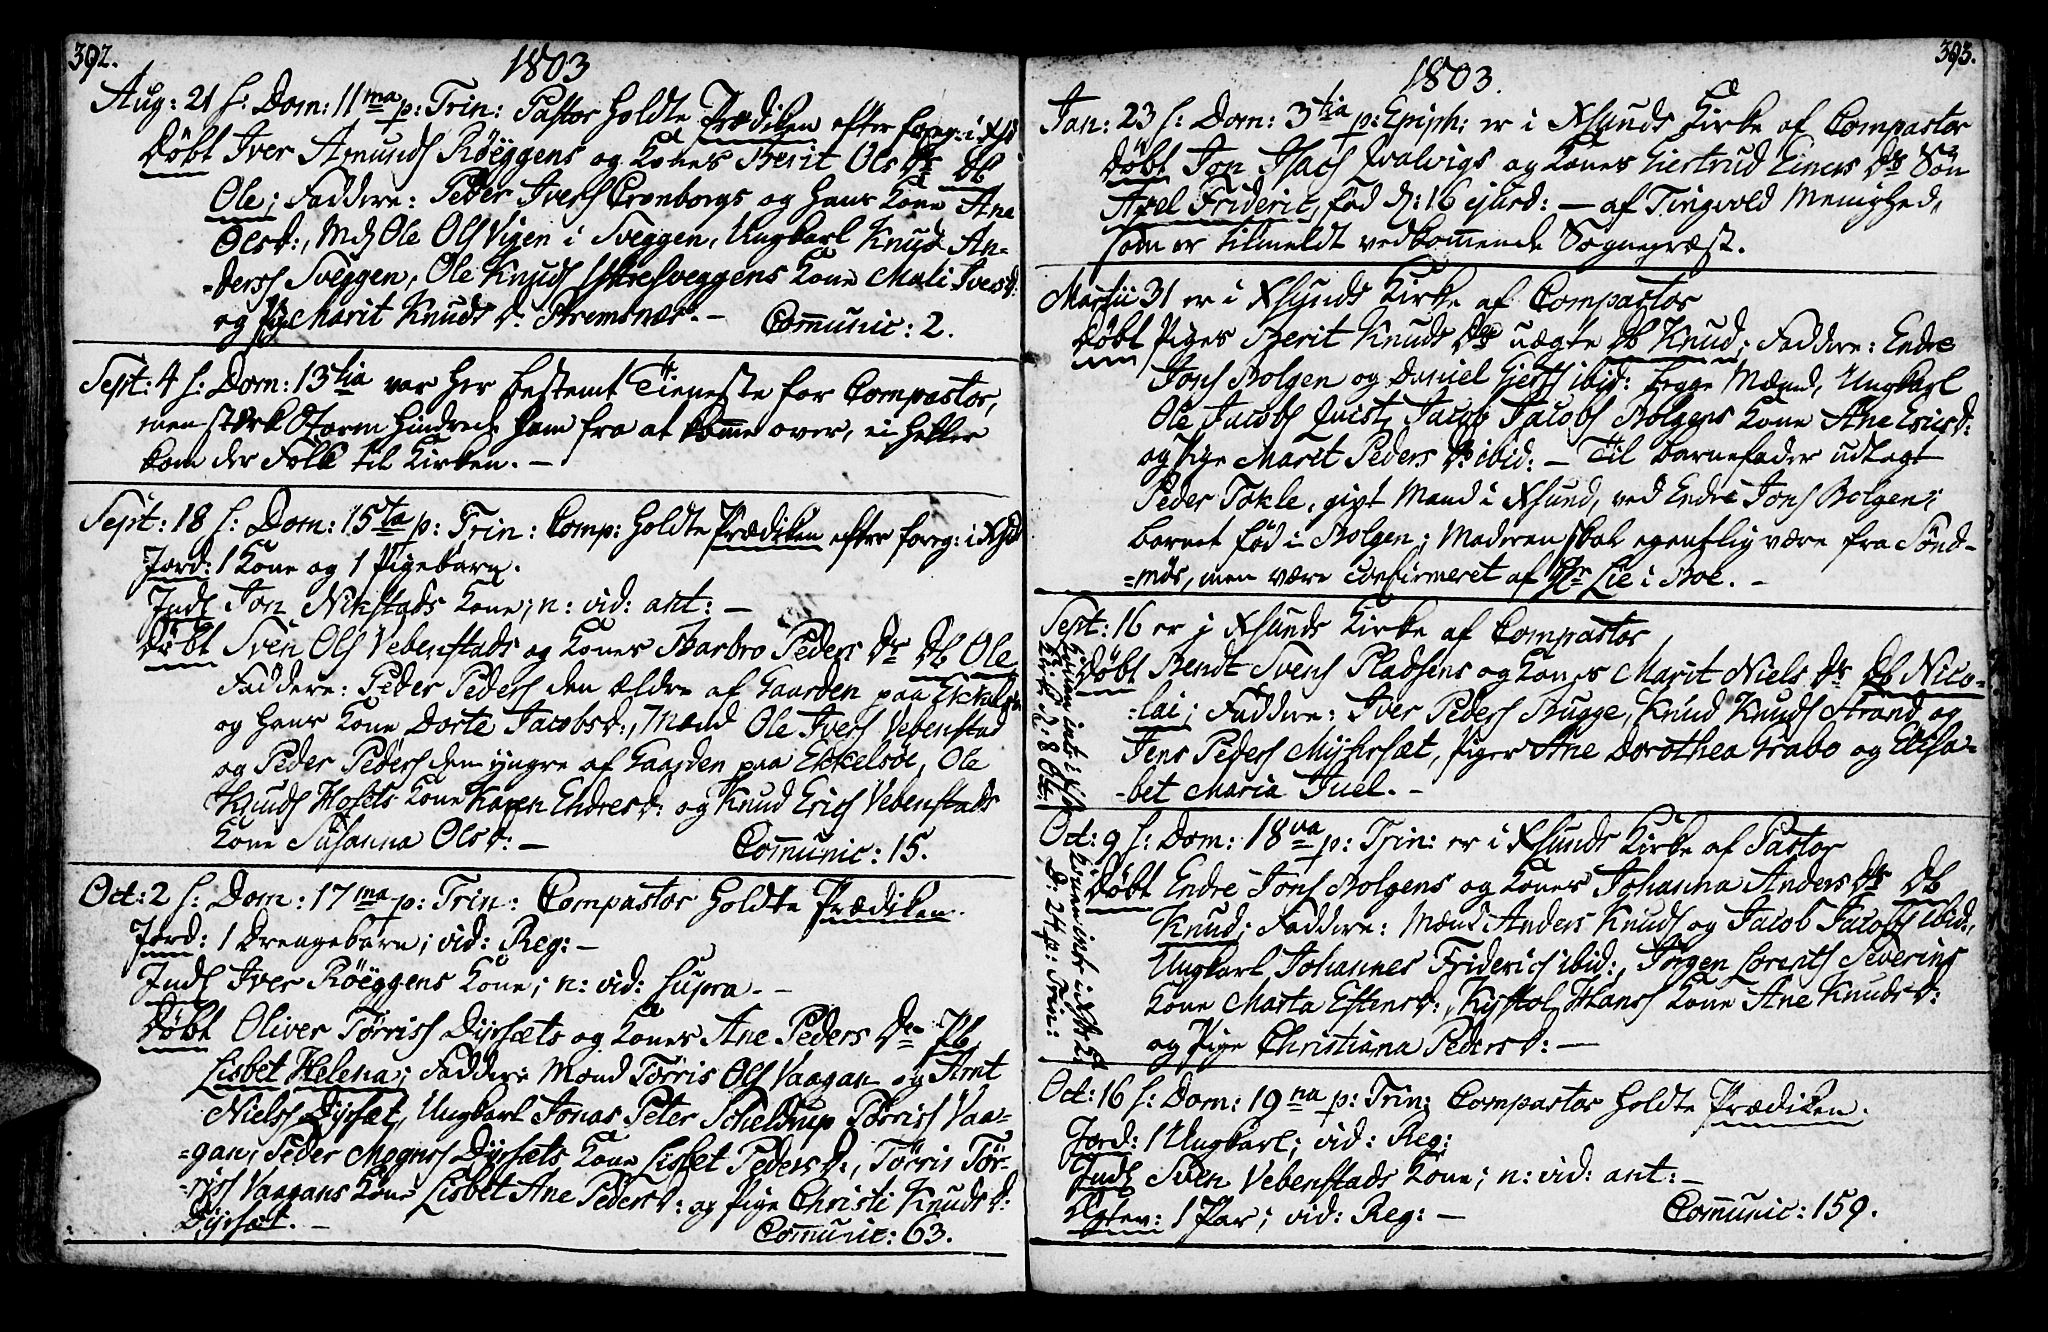 392.
1803
Aug: 21 s: Dom: 11ma p: Trin: Pastor holdte Prædiken efter foreg: i Xsd
Døbt Iver Amunds Röeggens og Kones Berit Ols Dr Db
Ole; Faddere: Peder Ivers Cronborgs og hans Kone Ane
Olsd:, Md Ole Ols Vigen i Sveggen, Ungkarl Knud An-
-ders Sveggen, Ole Knuds Sveggens Kone Mali Ivers d:
og Pige Marit Knuds d: Bremsnæs. - Communic: 2.
Sept: 4 s: Dom: 13tia var her bestemt Tieneste for Compastor,
men stærk Storm hindrede ham fra at komme over, ei heller
kom der Folk til Kirken. -
Sept: 18 s: Dom: 15ta p: Trin: Comp: holdte Prædiken efter foreg: i Xsd
Jord: 1 Kone og 1 Pigebarn.
Indl Jon Nikstads Kone; n: vid: ant: -
Døbt Sven Ols Vebenstads og Kones Barbro Peders Dr Db Ole
Faddere: Peder Peders den ældre af Gaarden paa Ekkelsøe
og hans Kone Dorte Jacobsd:, Mænd Ole Ivers Vebenstad
og Peder Peders den yngre af Gaarden paa Ekkelsöe, Ole
Knuds Hosets Kone Karen Endresd: og Knud Erics Vebenstads
Kone Susanna Olsd: - Communic: 15.
Oct: 2 s: Dom: 17ma p: Trin: Compastor holdte Prædiken.
Jord: 1 Drengebarn; vid: Reg: -
Indl Iver Röeggens Kone; n: vid: supra. -
Døbt Oliver Törriss Dyrsæts og Kones Ane Peders Dr Pb
Lisbet Helena; Faddere Mænd Törris Ols Vaagan og Amt
Niels Dyrsæt, Ungkarl Jonas Peter Scheldrup Törriss Vaa-
-gan, Peder Mogens Dyrsæts Kone Lisbet Pedersd:, Törris Tör-
-riss Vaagans Kone Lisbet Ane Pedersd: og Pige Christi Knudsd:
Dyrsæt. - Communic: 63.
393.
1803.
Jan: 23 s: Dom: 3tia p: Epiph: er i Xsunds Kirke af Compastor
Døbt Jon Isacs Qvalvigs og Kones Giertrud Einers Dr Søn
Axel Frideric, fød d: 16 ejusd: - af Tingvold Menighed,
som er tilmeldt vedkommende Sognepræst.
Martii 31 er i Xsunds Kirke af Compastor
Døbt Piges Berit Knuds Drs uægte Db Knud; Faddere: Endre
Jons Bolgen og Daniel Gierts ibid: begge Mænd, Ungkarl
Ole Jacobs Qvist, Jacob Jacobs Bolgens Kone Ane Ericsd:
og Pige Marit Peders D: ibid: - Til Barnefader udlagt
Peder Tokle, gift Mand i Xsund, ved Endre Jons Bolgen;
Barnet fød i Bolgen; Moderen skal egentlig være fra Sönd-
-mör, men være confirmeret af Hr Lie i Boe. -
Sept: 16 er i Xsunds Kirke af Compastor
Døbt Bendt Svens Pladsens og Kones Marit Niels Dr Db Nico-
-lai; Faddere: Iver Peders Bugge, Knud Knuds Strand og
Jens Peders Myhrsæt, Piger Ane Dorothea Grabo og Elisa-
-bet Maria Juel. -
Oct: 9 s: Dom: 18va p: Trin: er i Xsunds Kirke af Pastor
Døbt Endre Jons Bolgens og Kones Johanna Anders Dr Db
Knud; Faddere: Mænd Anders Knuds og Jacob Jacobs ibid:,
Ungkarl Johannes Friderics ibid:, Jörgen Lorents Severins
Kone Marta Estensd:, Hans Kone Ane Knudsd:
og Pige Christiana Pedersd: -
Oct: 16 s: Dom: 19na p: Trin: Compastor holdte Prædiken.
Jord: 1 Ungkarl; vid: Reg:
Indl Sven Vebenstads Kone; n: vid: ant: -
Ægtev: 1 Par; vid: Reg: - Communic: 159.
Konen intr: i
Kirk d: 8 Oct:
Konen intr: i Xsd K:
D: 24 p: Trin: